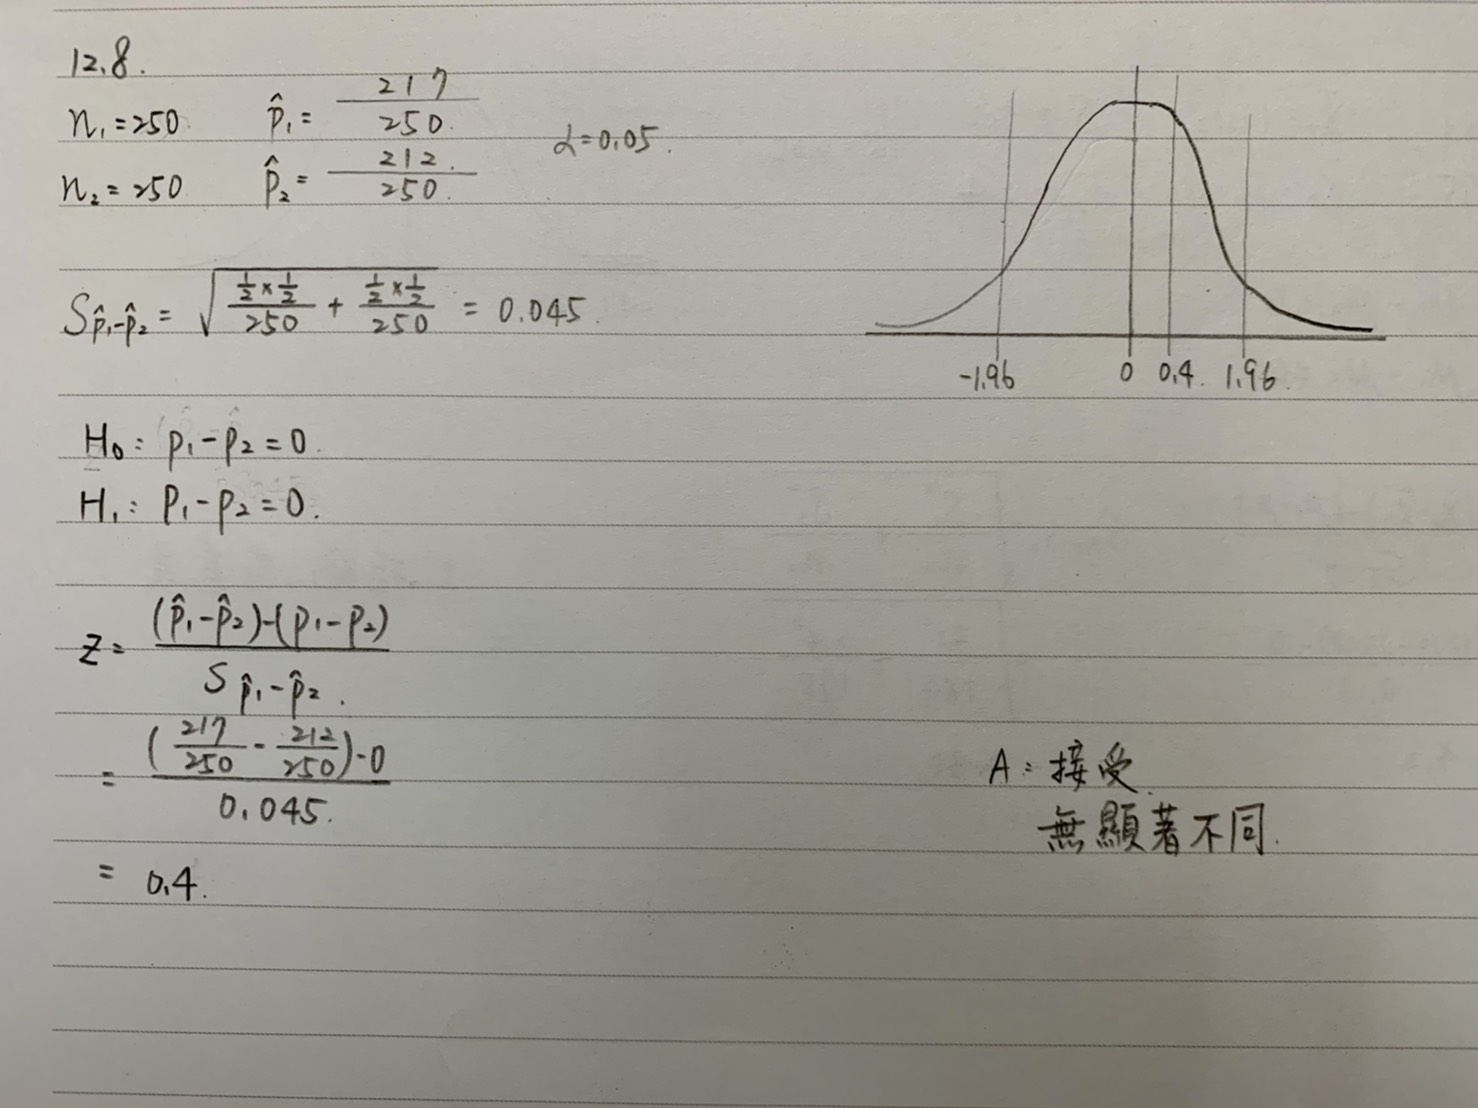 12.8.
n₁=250 p̂₁= 217/250.
n₂=250 p̂₂= 212./250.
α=0.05.
S p̂₁-p̂₂ = √(½×½/250 + ½×½/250) = 0.045.
-1.96 0 0.4. 1.96.
H₀: p₁-p₂=0.
H₁: p₁-p₂=0.
Z= (p̂₁-p̂₂)-(p₁-p₂) / S p̂₁-p̂₂.
= (217/250 - 212/250)-0 / 0.045.
= 0.4.
A: 接受.
無顯著不同.